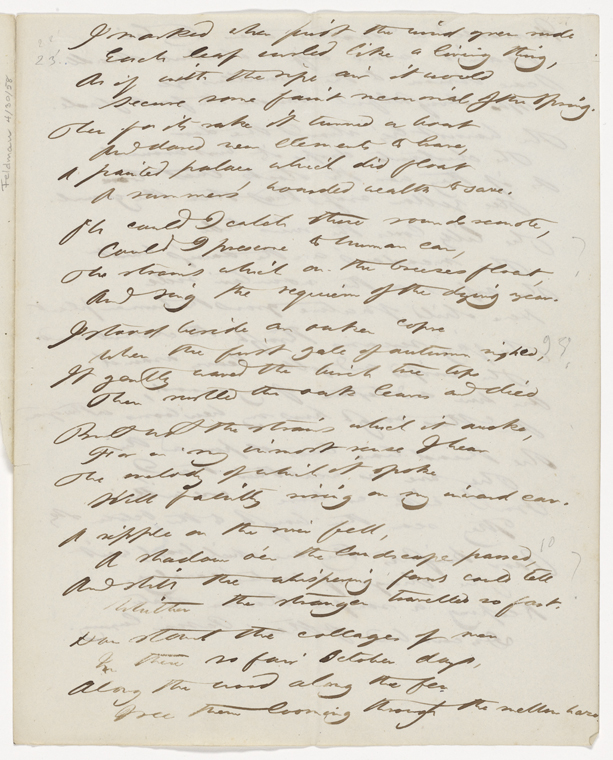 I marked when first the wind grew rude
Each leaf curled like a living thing,
As if with the ripe air it would
Secure some faint memorial of the Spring.
Then for its sake it turned a boat
And dared new elements to brave,
A painted palace which did float
A summer's hoarded wealth to save.
Oh could I catch these sounds remote,
Could I preserve to human ear,
The strains which on the breezes float,
And sing the requiem of the dying year.
I stood beside an oaken copse
When the first gale of autumn sighed,
It gently waved the birch tree tops
Then rustled the oak leaves and died
But not the strains which it awoke,
For in my inmost sense I hear
The melody of which it spoke
Still faintly rising on my inward ear.
A ripple on the river fell,
A shadow o'er the landscape passed,
And still the whispering ferns could tell
Whither the stranger travelled so fast.
How stand the cottages of men
In these so fair October days,
Along the wood along the fen
I see them looming through the mellow haze
Feldman 4/30/58